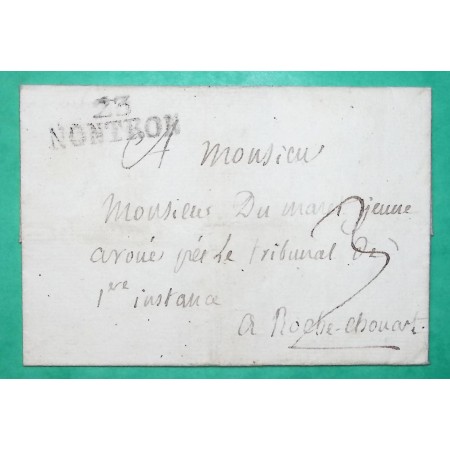 23
NONTRON
A Monsieur
Monsieur Du mares jeune
avoué près le tribunal de
1ere instance
3
a Roche-chouart.